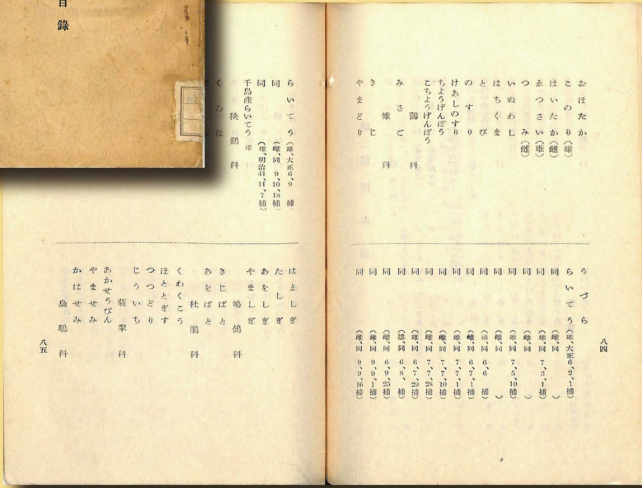 目錄
おほたか
このり(雄)
はいたか(雌)
ゑつさい(雄)
つみ(雌)
いぬわし
はちくま
とび
のすり
けあしのすり
ちようげんぼう
こちようげんぼう
鶚科
みさご
雉科
きじ
やまどり
うづら
らいてう(雄、大正6、2、1捕)
同
同(雌、同 7、3、1捕)
同
同(雄、同 7、5、10捕)
同
同(雌、同 6、6)
同(雌、同 6、7、1捕)
同(雌、同 7、7、1捕)
同(雌、同 7、7、10捕)
同(雌、同 7、7、28捕)
同(雌、同 6、7、29捕)
同(雄、同 6、8、捕)
同(雌、同 6、9、25捕)
同(雌、同 9、9、1捕)
同(雌、同 9、9、16捕)
八四
らいてう(雄、大正6、9 捕)
同(雌、同 9、10、18捕)
同(雄、明治41、11、7捕)
千島産らいてう 雄
秧鶏科
くひな
はとしぎ
たしぎ
あをしぎ
やましぎ
鳩鴿科
きじばと
あをばと
杜鵑科
くわくこう
ほととぎす
つつどり
じういち
翡翠科
あかせうびん
やませみ
かはせみ
梟鴟科
八五